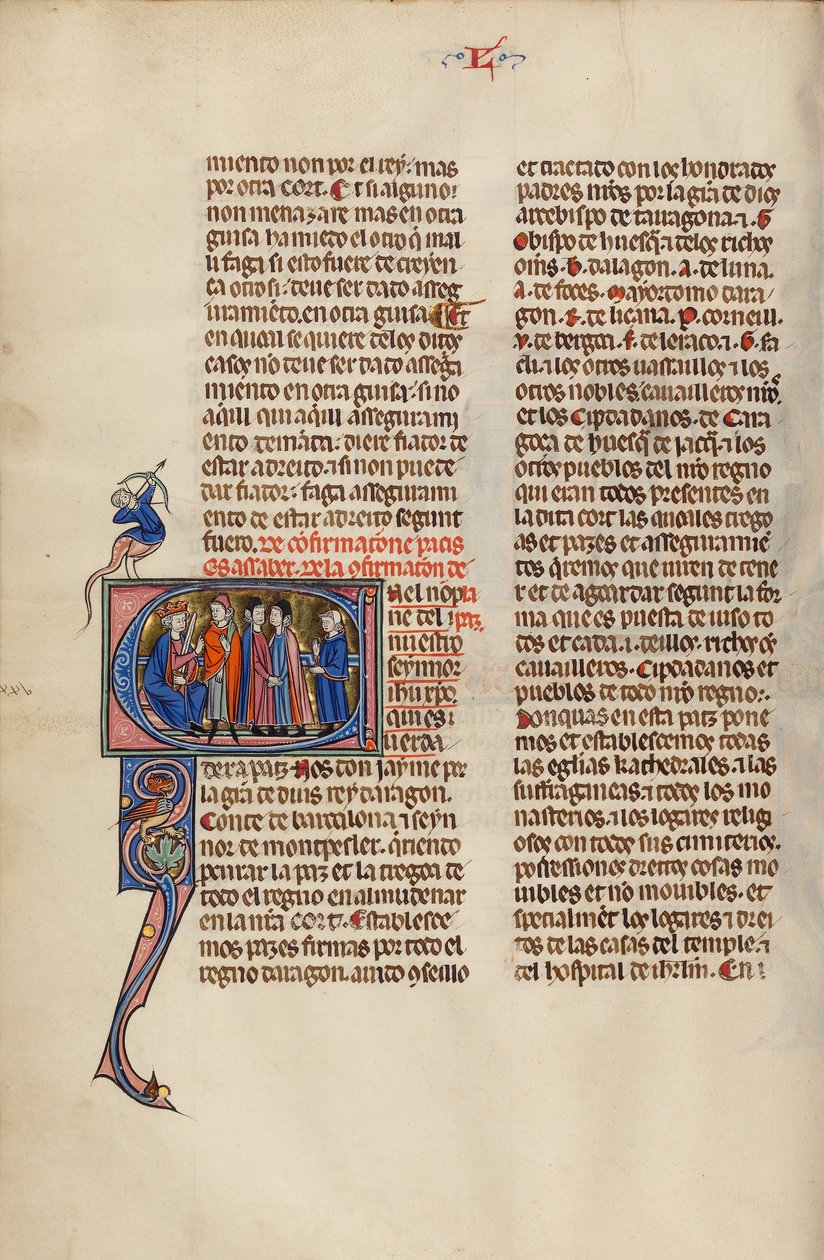 L
miento non por el rey: mas
por otra cort. Et si alguno:
non menazare mas en otra
guisa ha miedo el otro q̃ mal
li faga si esto fuere de creyen
ca otro si: deue ser dado asseg
uramiẽto. en otra guisa. Et
en qual se quiere delos ditos
casos nõ deue ser dado assegũa
miento en otra guisa: si no
aqũi qui aqũi assegurami
ento demãda: diere fiador de
estar adreito. ⁊ si non puede
dar fiador: faga assegurami
ento de estar adreito segunt
fuero. De cõfirmatione pacis
Es assaber. Dela ꝯfirmatiõn de
la
paz.
En el nõp
ne del
nuestro
seynnor
ihu xpo.
qui es
uerda
dera patz. Nos don jayme por
la grã de dius rey daragon.
Conte de barcalona ⁊ seyn
nor de montpesler. q̃riendo
penrar la paz et la tregoa de
todo el regno en almudeuar
en la nr̃a cort. Establesce
mos pazes firmas por todo el
regno daragon. auido ꝯseillo
et tractado con los hondrados
padres nr̃os por la grã de dios
arcebispo de taragona. ⁊. G
Obispo de huesq̃. ⁊ delos richos
om̃s. B. dalagon. A. de luna.
A. de foces. Mayordomo dara
gon. R. de licana. P. corneill.
V. de bergoa. F. de leraco. ⁊. G. fa
⁊ los otros uassaillos ⁊ los
otros nobles cauailleros nr̃os.
et los Cipdadanos. de Cara
goça de huesq̃ de jacq̃. ⁊ los
otros pueblos del nr̃o regno
qui eran todos presentes en
la dita cort las quales trego
as et pazes et asseguramiẽ
tos q̃remos que uiren de tene
r et de agoardar segunt la for
ma que es puesta de iuso to
dos et cada. ⁊. deillos. richos oẽs
cauailleros. Cipdadanos et
pueblos de todo nr̃o regno:.
Donquas en esta patz pone
mos et establescemos todas
las eglias kathedrales. ⁊ las
suffragineas. ⁊ todos los mo
nasterios. ⁊ los logares religi
osos con todos sus cimiterios.
possessiones dreitos cosas mo
uibles et nõ mouibles. et
specialmẽt los logares ⁊ drei
tos de las casas del temple. ⁊
del hospital de ihrlm̃. En